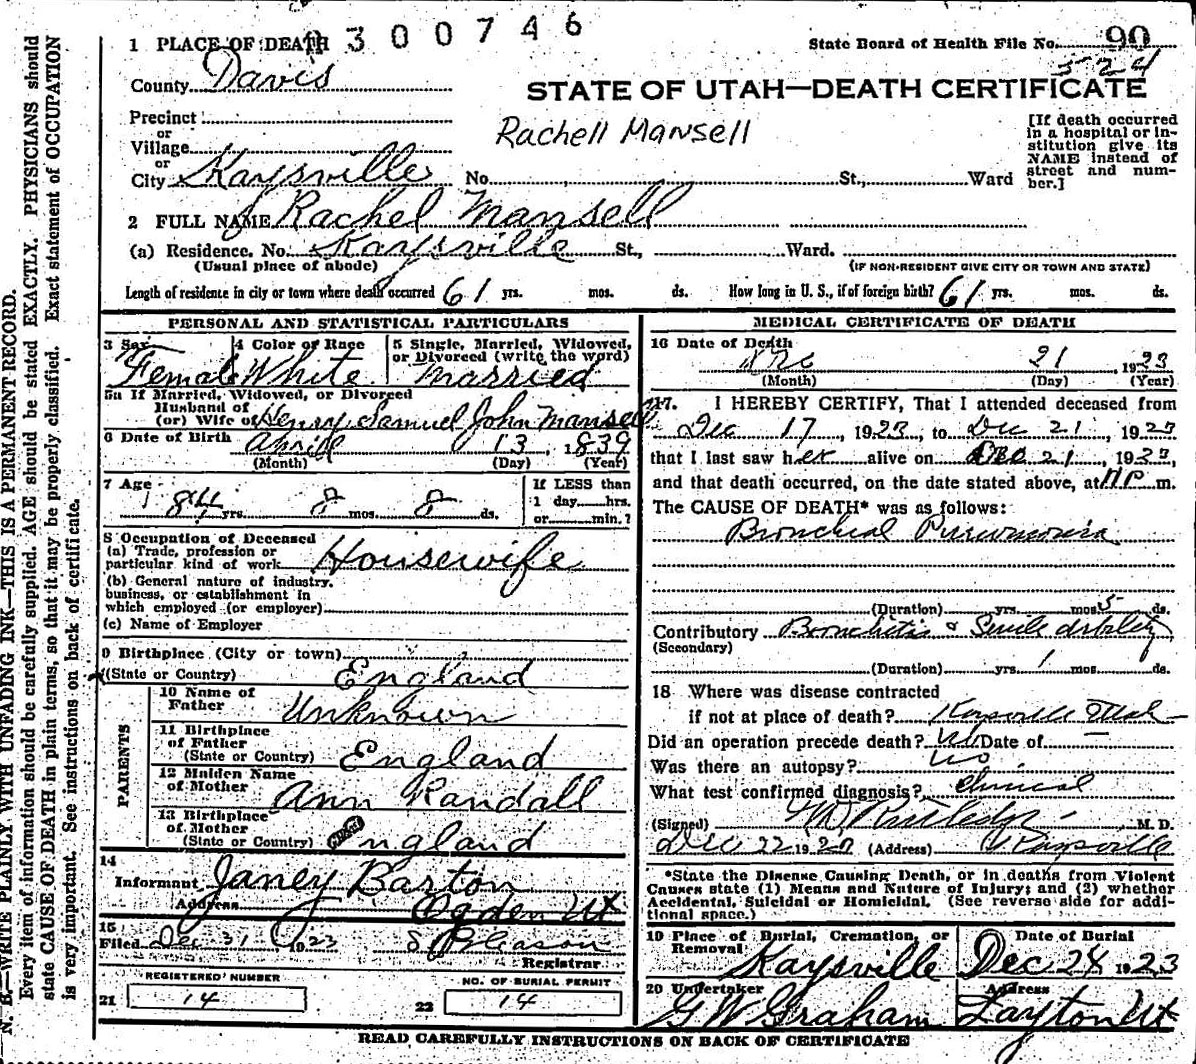 2300746
1 PLACE OF DEATH
State Board of Health File No. 90
524
County Davis
STATE OF UTAH—DEATH CERTIFICATE
Precinct
or
Village
or
City Kaysville No. St., Ward
Rachell Mansell
[If death occurred
in a hospital or in-
stitution give its
NAME instead of
street and num-
ber.]
2 FULL NAME Rachel Mansell
(a) Residence. No. Kaysville St., Ward.
(Usual place of abode)
(IF NON-RESIDENT GIVE CITY OR TOWN AND STATE)
Length of residence in city or town where death occurred 61 yrs. mos. ds. How long in U. S., if of foreign birth? 61 yrs. mos. ds.
PERSONAL AND STATISTICAL PARTICULARS
3 Sex
Female
4 Color or Race
White
5 Single, Married, Widowed,
or Divorced (write the word)
Married
5a If Married, Widowed, or Divorced
Husband of
(or) Wife of Henry Samuel John Mansell
6 Date of Birth April 13, 1839
(Month) (Day) (Year)
7 Age
84 yrs. 8 mos. 8 ds.
If LESS than
1 day hrs.
or min.?
8 Occupation of Deceased
(a) Trade, profession or
particular kind of work Housewife
(b) General nature of industry,
business, or establishment in
which employed (or employer)
(c) Name of Employer
9 Birthplace (City or town)
(State or Country) England
PARENTS
10 Name of
Father Unknown
11 Birthplace
of Father
(State or Country) England
12 Maiden Name
of Mother Ann Randall
13 Birthplace
of Mother
(State or Country) England
14
Informant Janey Barton
Address Ogden Ut
15
Filed Dec 31 1923 S Gleason
Registrar
REGISTERED NUMBER
21 14
NO. OF BURIAL PERMIT
22 14
MEDICAL CERTIFICATE OF DEATH
16 Date of Death
Dec 21, 1923
(Month) (Day) (Year)
17. I HEREBY CERTIFY, That I attended deceased from
Dec 17, 1923, to Dec 21, 1923
that I last saw her alive on Dec 21, 1923,
and that death occurred, on the date stated above, at m.
The CAUSE OF DEATH* was as follows:
Bronchial Pneumonia
(Duration) yrs. mos. 5 ds.
Contributory Bronchitis & Senile debility
(Secondary)
(Duration) yrs. 1 mos. ds.
18 Where was disease contracted
if not at place of death? Kaysville
Did an operation precede death? No Date of —
Was there an autopsy? No
What test confirmed diagnosis? Clinical
(Signed) Rutledge M. D.
Dec 22 1923 (Address) Kaysville
*State the Disease Causing Death, or in deaths from Violent
Causes state (1) Means and Nature of Injury; and (2) whether
Accidental, Suicidal or Homicidal. (See reverse side for addi-
tional space.)
19 Place of Burial, Cremation, or
Removal
Kaysville
Date of Burial
Dec 24 1923
20 Undertaker
G W Graham
Address
Layton Ut
READ CAREFULLY INSTRUCTIONS ON BACK OF CERTIFICATE
N. B.—WRITE PLAINLY WITH UNFADING INK—THIS IS A PERMANENT RECORD.
Every item of information should be carefully supplied. AGE should be stated EXACTLY. PHYSICIANS should
state CAUSE OF DEATH in plain terms, so that it may be properly classified. Exact statement of OCCUPATION
is very important. See instructions on back of certificate.